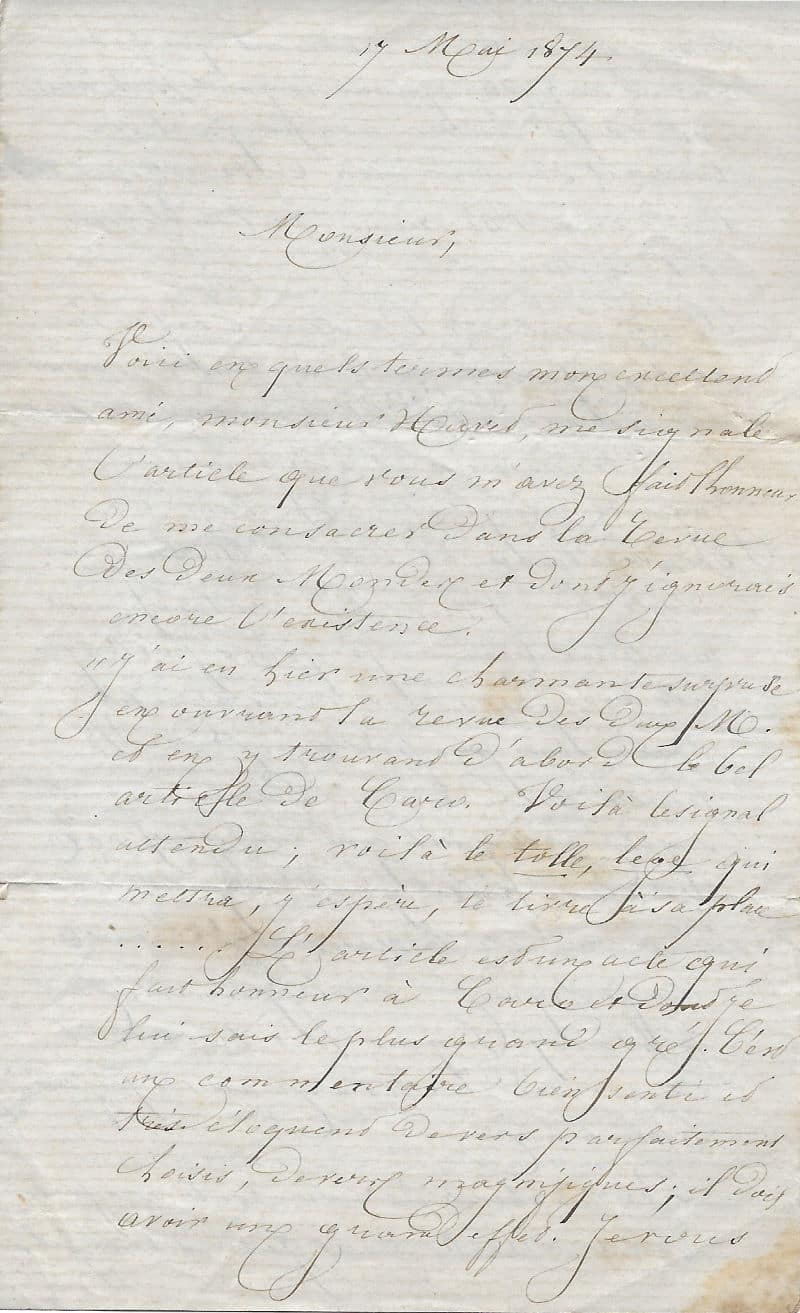 17 Mai 1874
Monsieur,
Voici en quels termes mon excellent
ami, monsieur Havet, me signale
l'article que vous m'avez fait l'honneur
De me consacrer Dans la Revue
Des Deux Mondes et dont j'ignorais
encore l'existence.
"J'ai eu hier une charmante surprise
en ouvrant la revue Des Deux M.
et en y trouvant D'abord le bel
article De Caro. Voilà le signal
attendu ; voilà le tolle, lege qui
mettra, j'espère, le livre à sa place
...... L'article est un acte qui
fait honneur à Caro et Dont je
lui sais le plus grand gré. C'est
un commentaire bien senti et
très éloquent De vers parfaitement
choisis, De vers magnifiques ; il doit
avoir un grand effet. Je vous